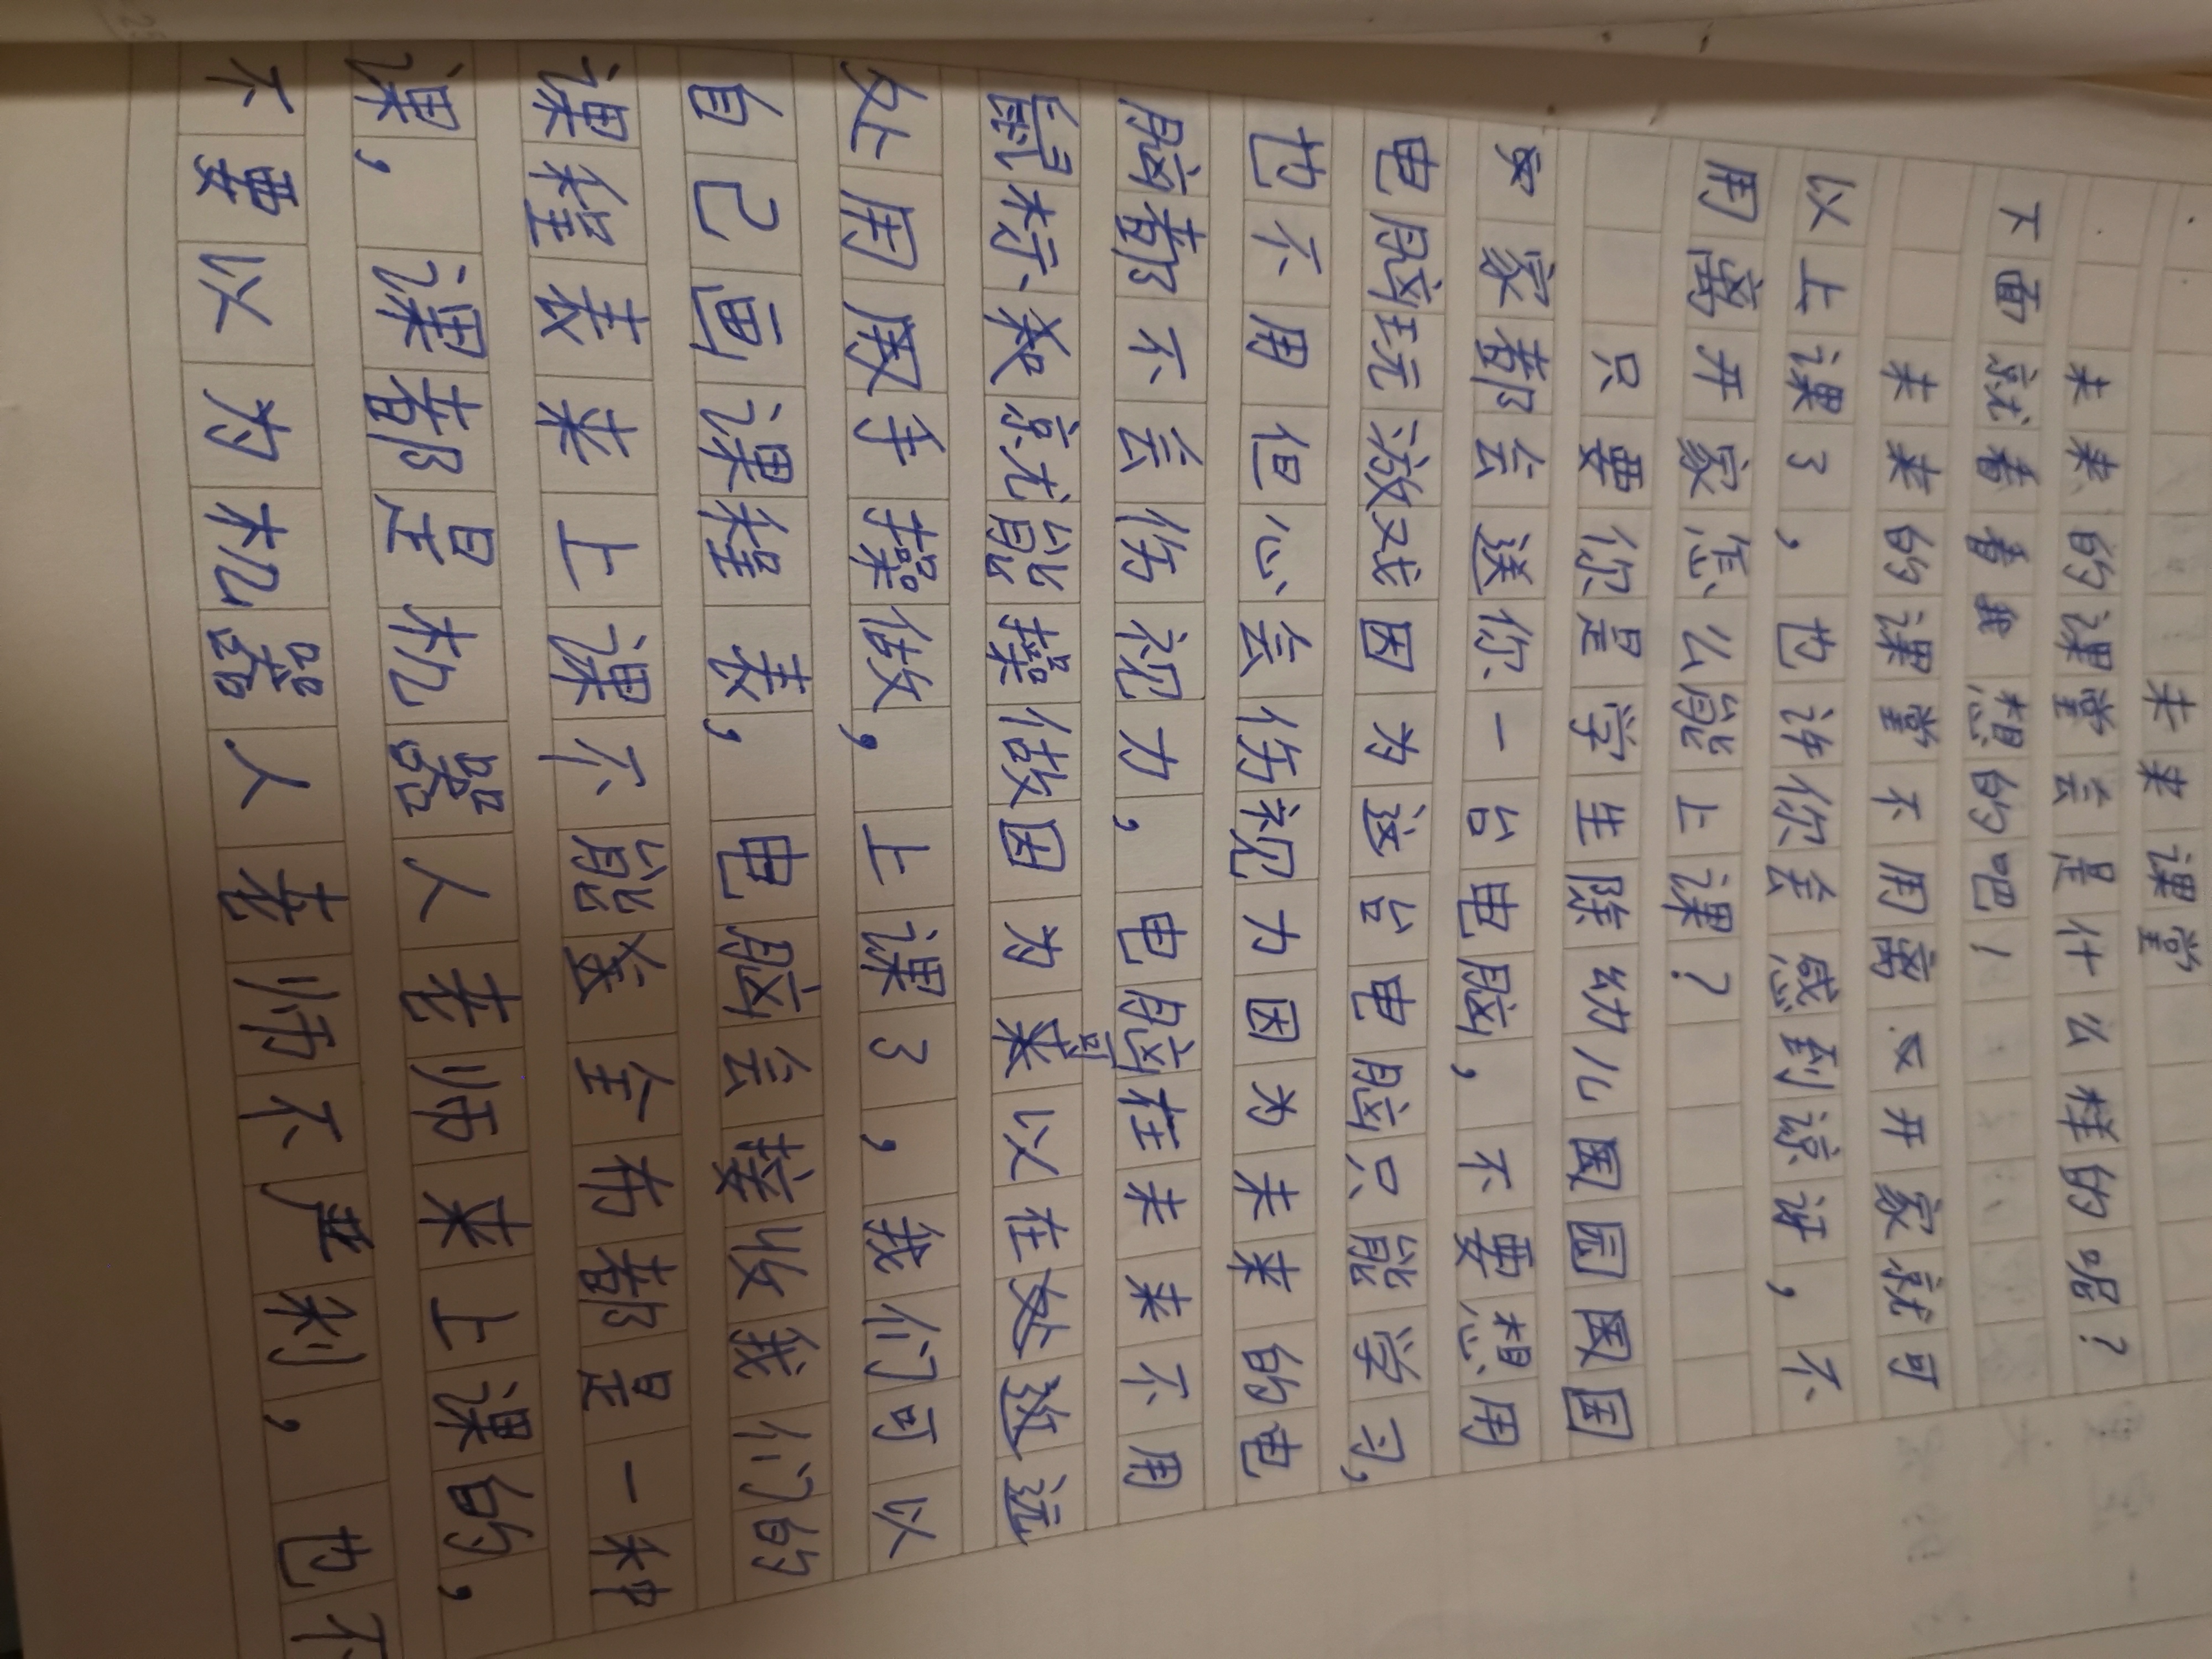 未来课堂
未来的课堂会是什么样的呢？
下面就看看我想的吧！
未来的课堂不用离开家就可
以上课了，也许你会感到谅讶，不
用离开家怎么能上课？
只要你是学生除幼儿园
家都会送你一台电脑，不要想用
电脑玩游戏因为这台电脑只能学习，
也不用但心会伤视力因为未来的电
脑都不会伤视力，电脑在未来不用
鼠标、和京尤能操做因为可以在
处用双手操做，上课了，我们可以
自己画课程表，电脑会接收我们的
课程表来上课不能全全部都是一种
课，课都是机器人老师来上课的，
不要以为机器人老师不严利，也不